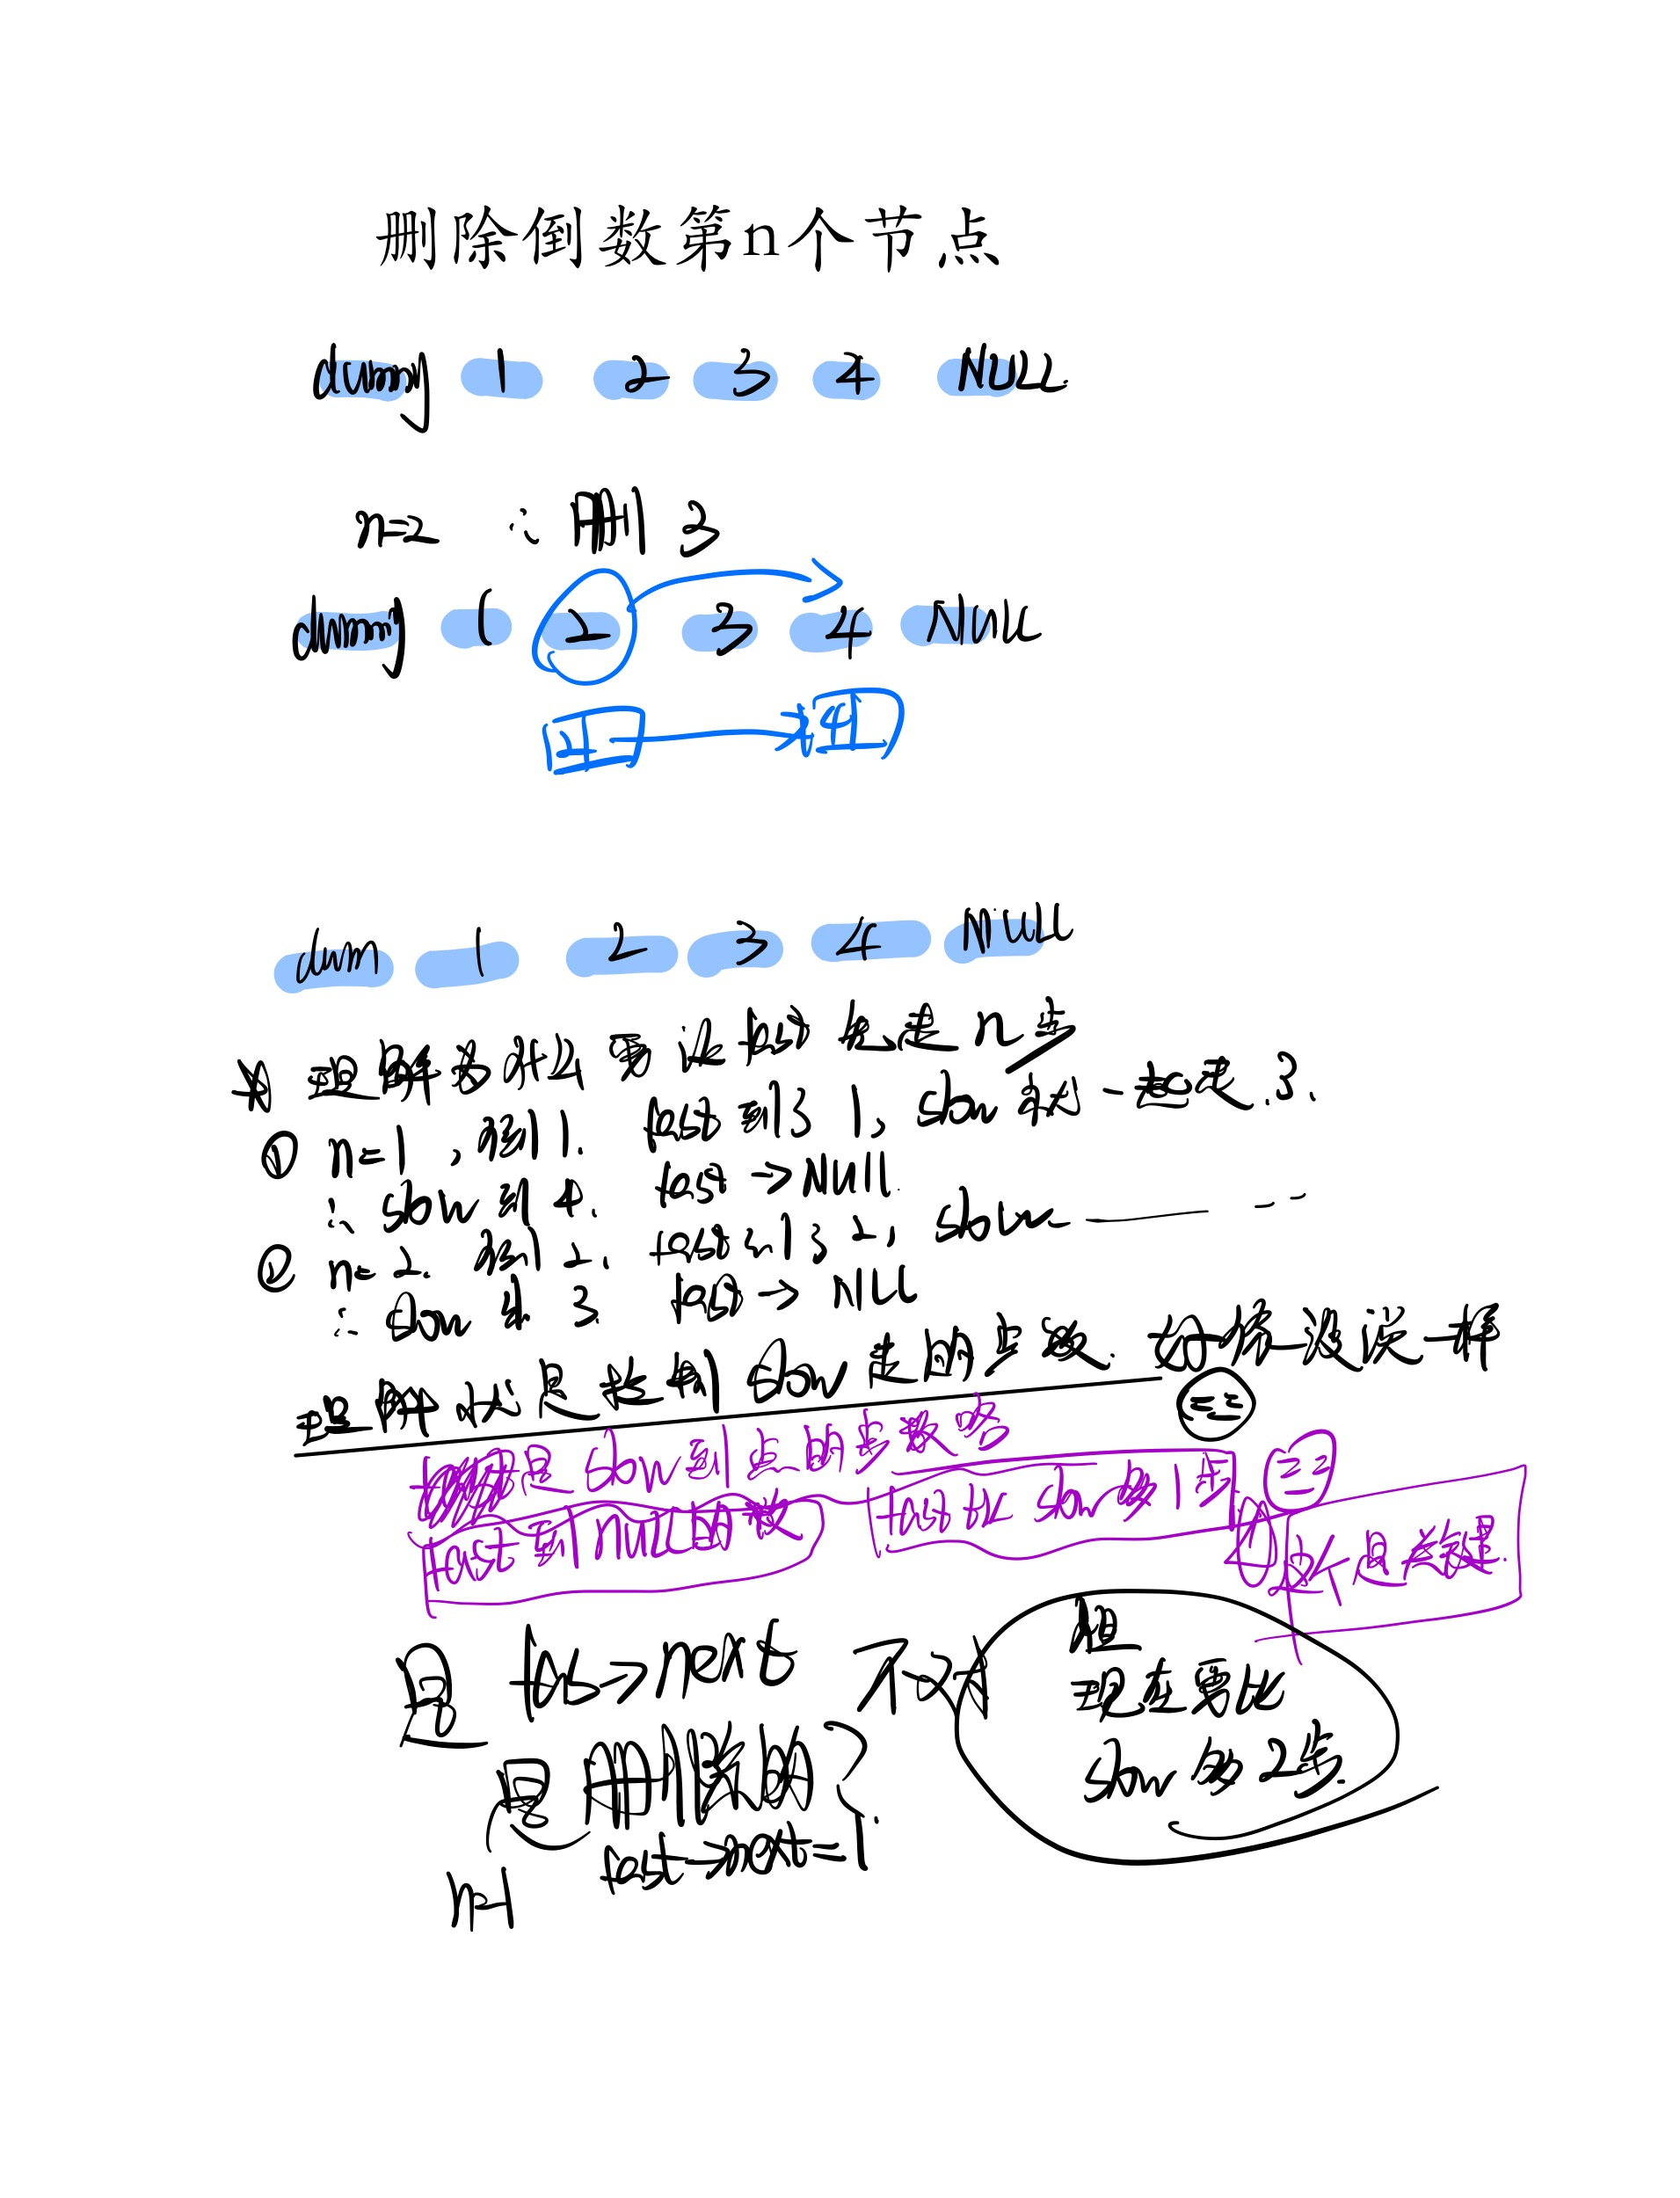 删除倒数第n个节点
dummy 1 2 3 4 NULL
n=2 ∴ 删 3
dummy 1 2 3 4 NULL
2 4
dum 1 2 3 4 NULL
* 理解为什么要让fast先走n步
① n=1, 到1. fast到3 1, slow 就一起走.3.
∴ slow到4. fast→NULL.
② n=2. 2, fast 2, slow
∴ slow 3 fast→NULL
理解 是控制slow走的步数. 好像没说一样
是slow到点的步数咯
fast到null的数 fast比slow多1步
是关键.
是 fas→next 不对 但
现在要比
是删除的? slow多2步.
fast→next=1.
n=1